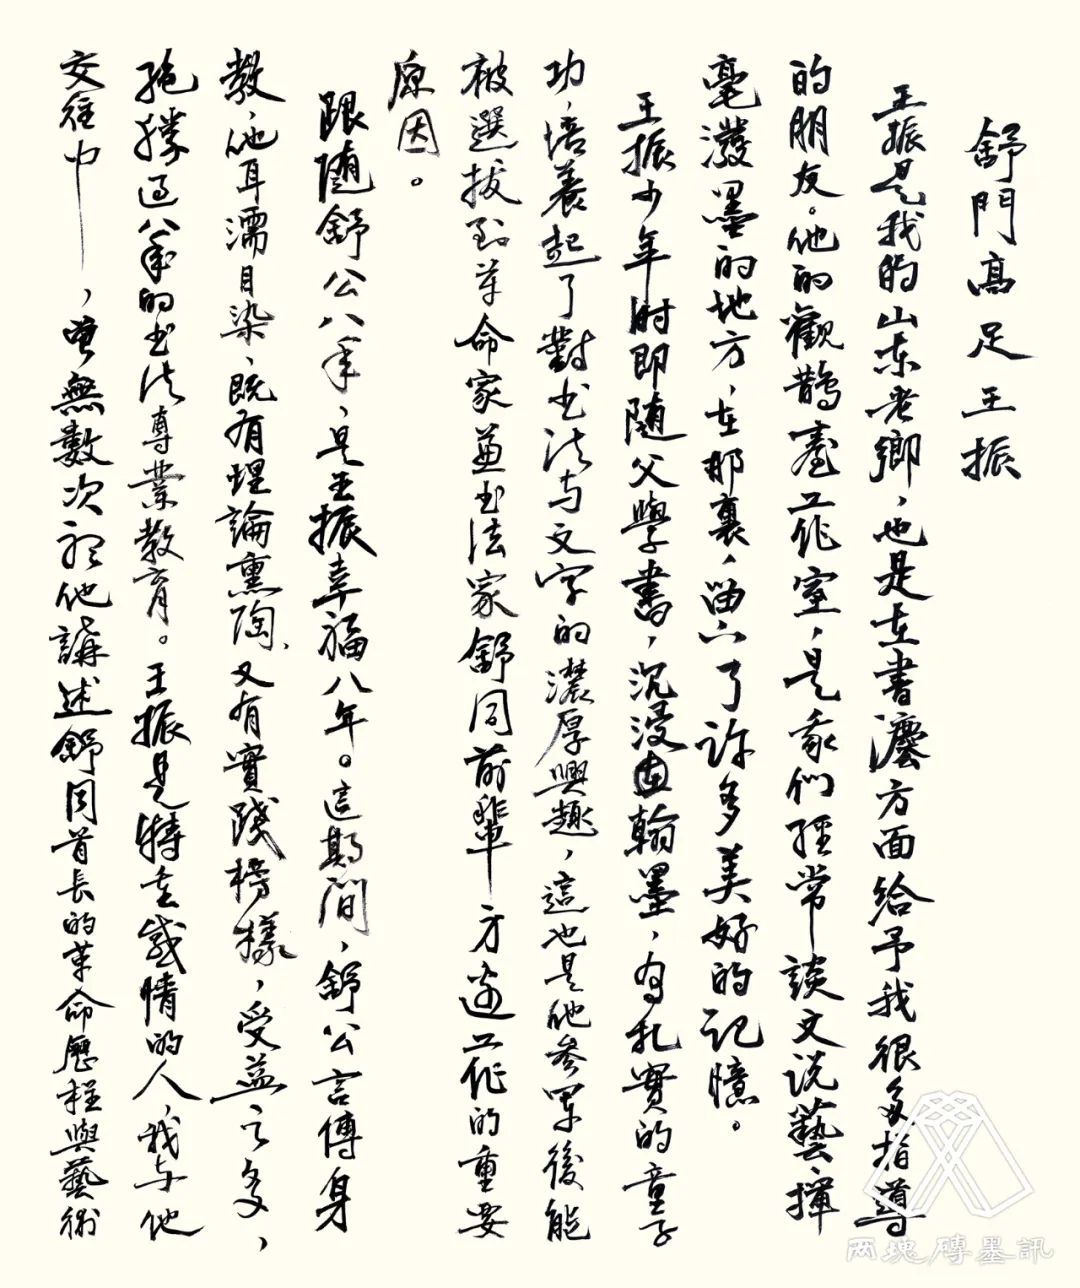 舒門高足王振
王振是我的山东老鄉，也是在書灋方面給予我很多指導
的朋友。他的觀鵲臺工作室，是我們經常談文说藝揮
毫潑墨的地方，在那裏，留下了許多美好的記憶。
王振少年时即随父學書，沉浸翰墨，有扎實的童子
功，培養起了對书法与文字的濃厚興趣，這也是他參軍後能
被選拔到革命家兼书法家舒同前輩身边工作的重要
原因。
跟隨舒公八年，是王振幸福八年。這期間，舒公言傳身
教，他耳濡目染，既有理論熏陶，又有實踐榜樣，受益之多，
絶勝過八年的书法專業教育。王振是特重感情的人，我与他
交往中，曾無數次聽他講述舒同首長的革命歷程與藝術
两塊磚墨訊